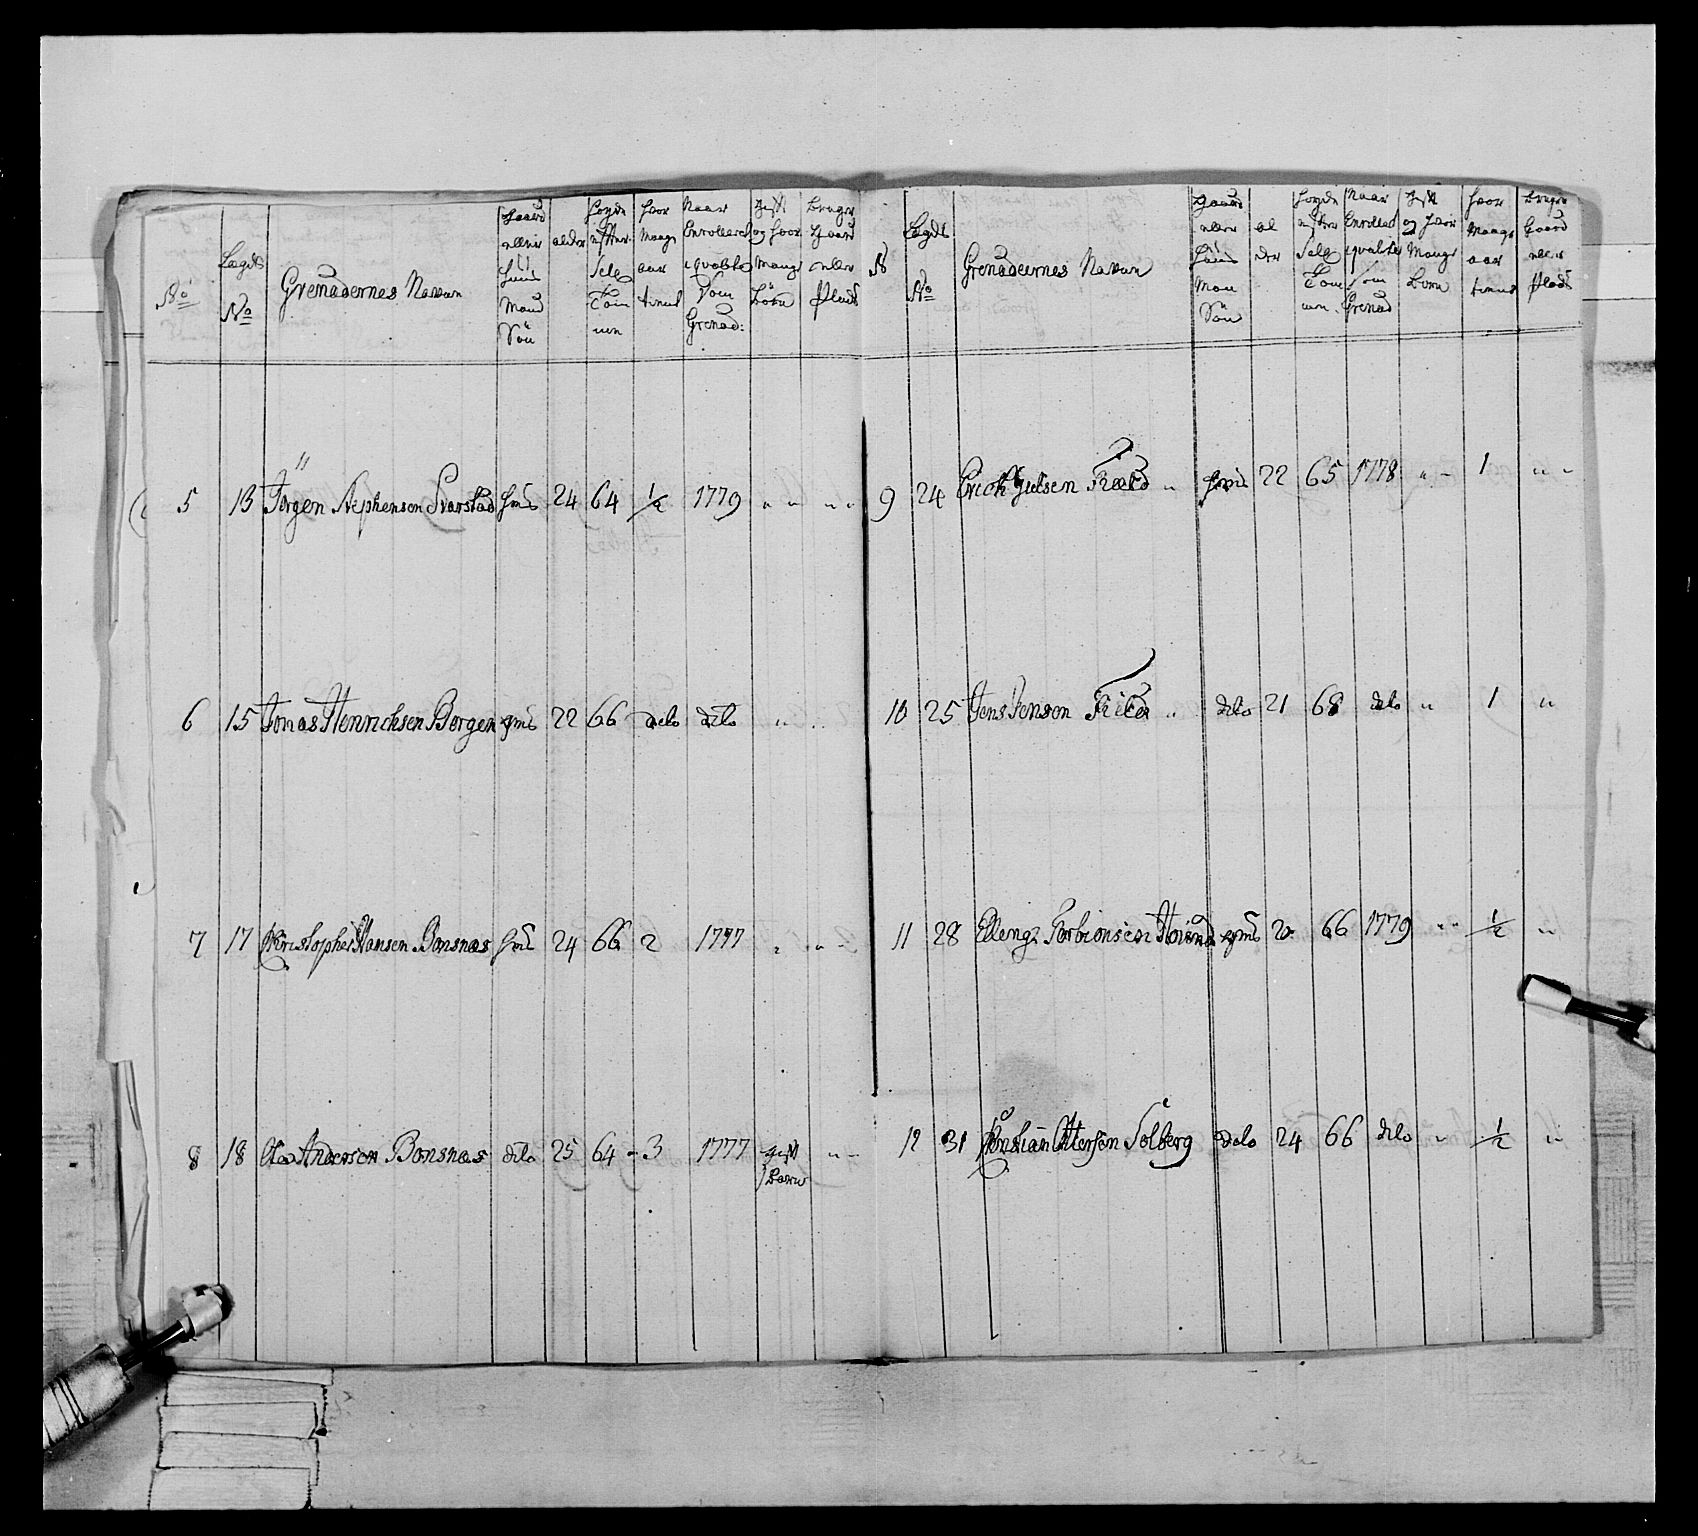 No
Lægds No
Grenaderernes Navn
Gaard eller Huus Mand Søn
alder
Høyde efter Sele Tom men
hvor Mange aar tient
Naar Enrollered qvalite som Grenad:
Gift og hvor Mange Børn
Bruger Gaard eller Plads
5 13 Jörgen Stephensen Svarstad huus 24 64 ½ 1779 " " " "
6 15 Jonas Henrichsen Bergen 22 66 dito dito " "
7 17 Christopher Hansen Bonsnæs 24 66 2 1777 " " "
8 18 Ola Andersen Bonsnæs dito 25 64 - 3 1777 gift
1 Barn " "
No
Lægds No
Grenaderernes Navn
Gaard eller Huus Man Søn
al der
Høyde efter Sele Tom men
Naar Enrollered qvalite som Grenad
Gift og hvor Mange Børn
hvor Mange aar tient
Bruger Gaard eller Plads
9 24 Erich Julsen " 22 65 1778 " - 1 " "
10 25 Jens Jensen " dito 21 68 dito " 1 "
11 28 Torbiönsen 66 1779 " " ½ "
12 31 Christian Ottersen Solberg dito 24 66 dito " ½ "